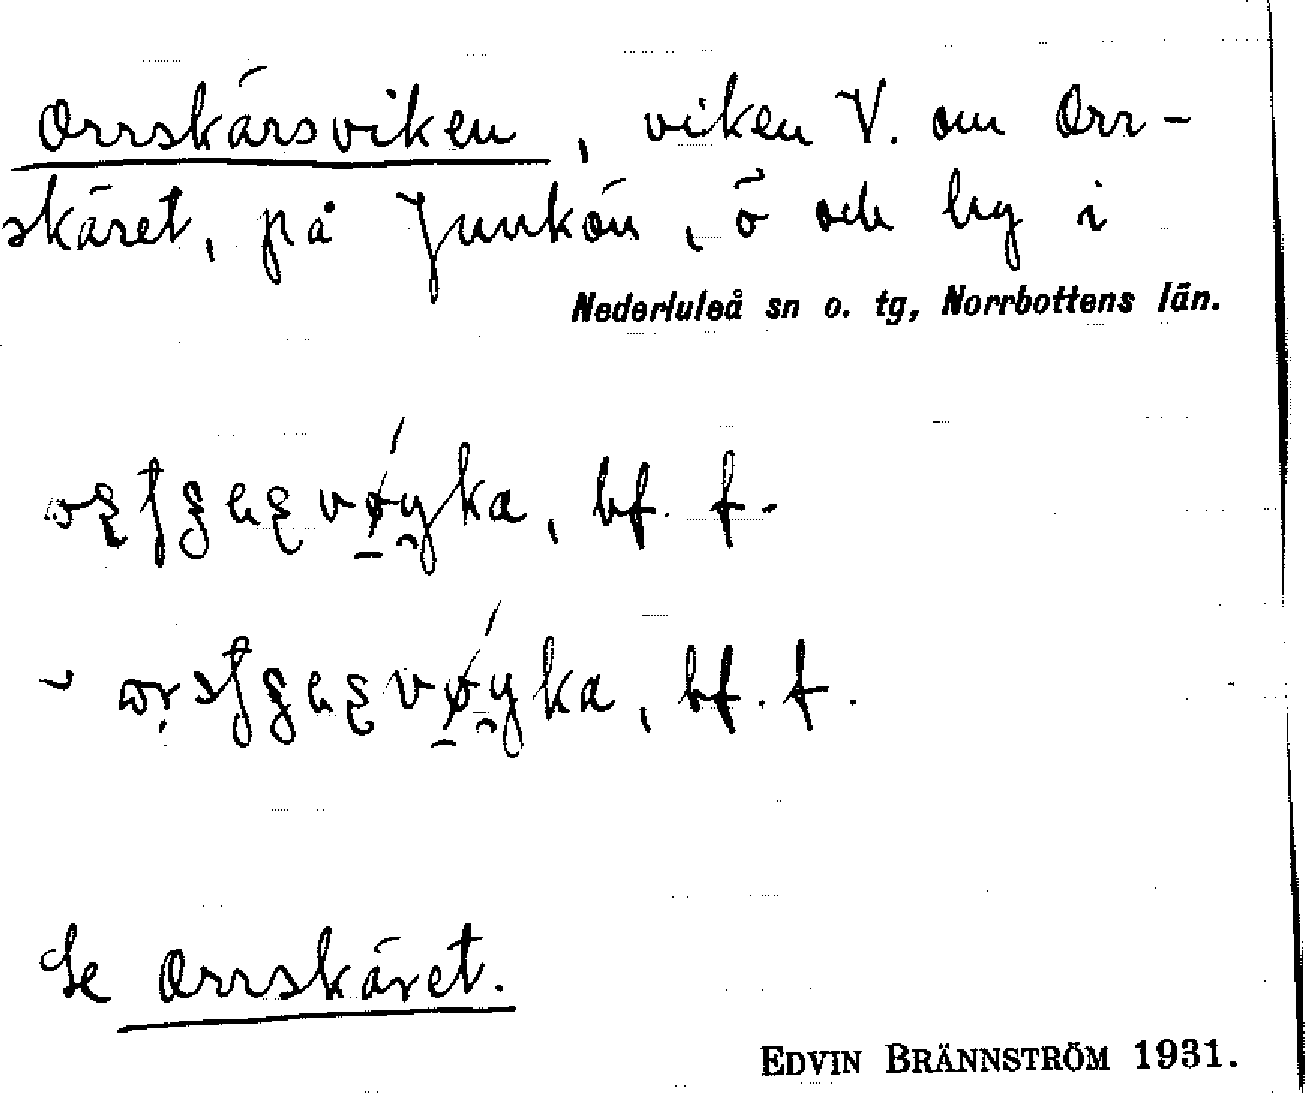 Orrskärsviken, viken V. om Orr-
skäret, på Junkön, ö och by i
Nederluleå sn o. tg, Norrbottens län.
bf. f.
bf. f.
Se Orrskäret.
EDVIN BRÄNNSTRÖM 1931.